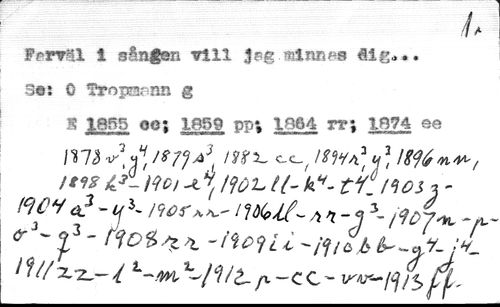 1.
Farväl i sången vill jag minnas dig...
Se: O Tropmann g
E 1855 cc; 1859 pp; 1864 rr; 1874 ee
1878 v³, y⁴, 1879 s³, 1882 cc, 1894 r³, y³, 1896 nn,
1898 k³ - 1901 - e⁴, 1902 ll - k⁴ - t⁴ - 1903 z -
1904 a³ - y³ - 1905 rr - 1906 ll - rr - g³ - 1907 n - p -
o³ - q³ - 1908 zz - 1909 ii - 1910 bb - g⁴ - j⁴ -
1911 zz - l² - m² - 1912 p - cc - vv - 1913 ff.